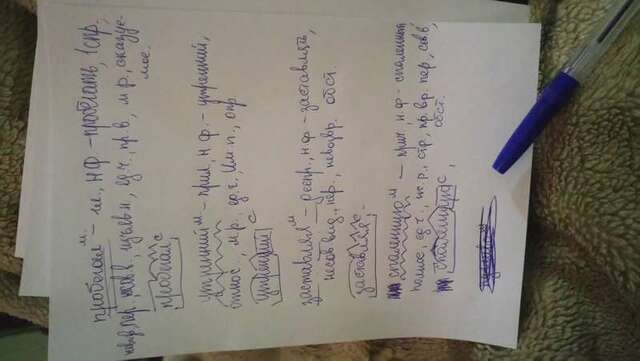 пробегалᴹ – гл., Н Ф – пробегать, 1 спр.,
невозв., пер., несов в., изъяв н., ед ч., пр. в., м р., сказуе-
мое.
пробегалᶜ
утреннийᴹ – прил, н. ф. – утренний,
относ., м.р., ед. ч., Им. п., опр.
утреннийᶜ
заставляяᴹ – деепр., н. ф – заставлять,
несов вид., пер., невозвр. обст.
заставляяᶜ.
спаленнуюᴹ – прич, н. ф – спаленный
полное, ед ч., ж. р., стр., пр. вр. пер, сов в,
спаленнуюᶜ, обст.